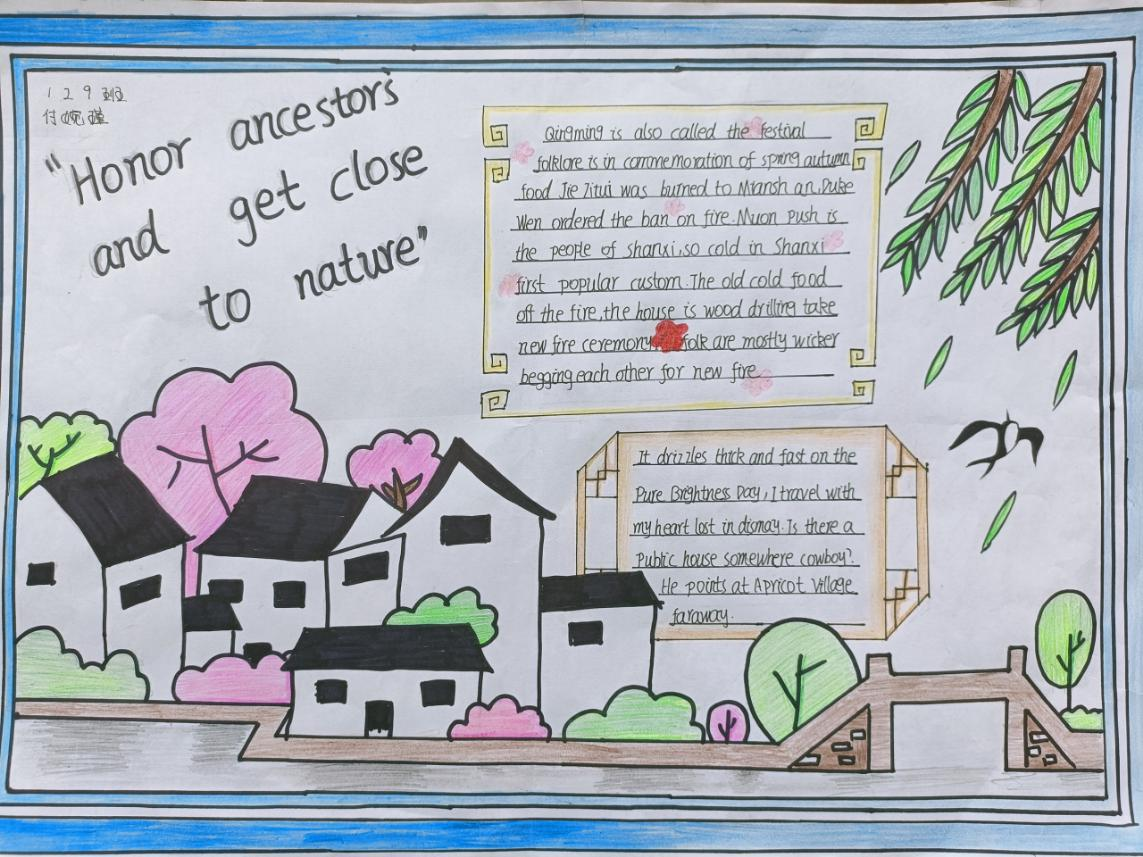 129班
付婉瑾
"Honor ancestors
and get close
to nature"
Qingming is also called the festival
folklore is in commemoration of spring autumn
food Jie Zitui was burned to Mians h an, Duke
Wen ordered the ban on fire. Muon Push is
the people of shanxi, so cold in Shanxi
first popular custom. The old cold food
off the fire, the house is wood drilling take
new fire ceremony folk are mostly wicker
begging each other for new fire
It drizzles thick and fast on the
Pure Brightness Day, I travel with
my heart lost in dismay. Is there a
Public house somewhere cowboy?
He points at Apricot Village
faraway.